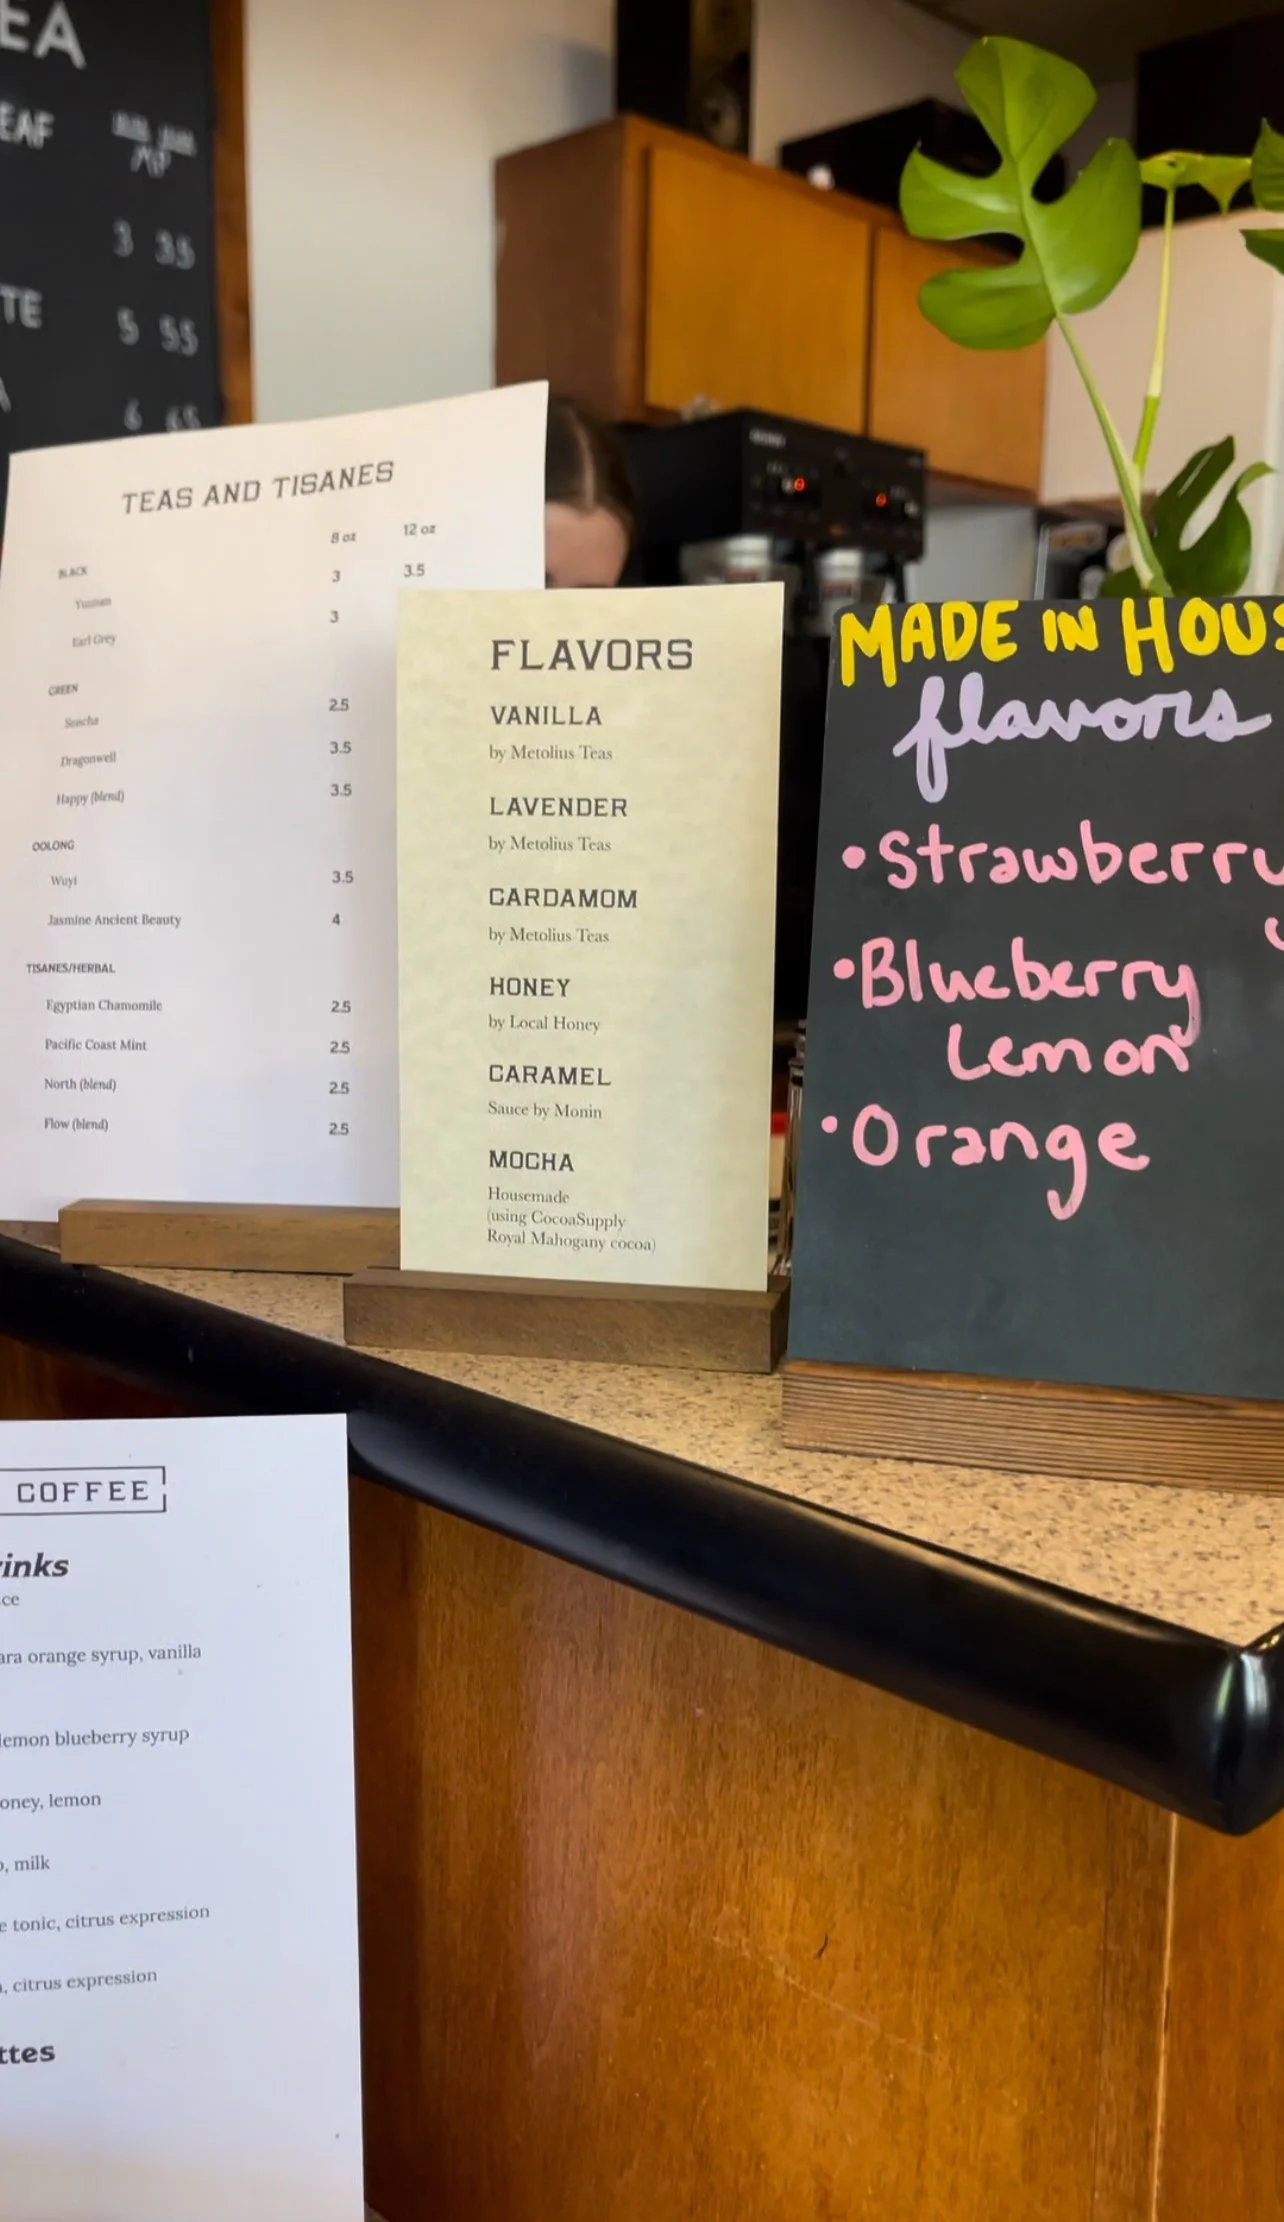 EA
EAF
3 3.5
TE
5 5.5
6 6.5
TEAS AND TISANES
8 oz 12 oz
BLACK
3 3.5
Yunnan
Earl Grey
3
GREEN
Sencha 2.5
Dragonwell 3.5
Happy (blend) 3.5
OOLONG
Wuyi 3.5
Jasmine Ancient Beauty 4
TISANES/HERBAL
Egyptian Chamomile 2.5
Pacific Coast Mint 2.5
North (blend) 2.5
Flow (blend) 2.5
FLAVORS
VANILLA
by Metolius Teas
LAVENDER
by Metolius Teas
CARDAMOM
by Metolius Teas
HONEY
by Local Honey
CARAMEL
Sauce by Monin
MOCHA
Housemade
(using CocoaSupply
Royal Mahogany cocoa)
MADE IN HOUS
flavors
•Strawberry
•Blueberry
Lemon
•Orange
COFFEE
rinks
ce
ara orange syrup, vanilla
lemon blueberry syrup
oney, lemon
o, milk
e tonic, citrus expression
, citrus expression
ttes